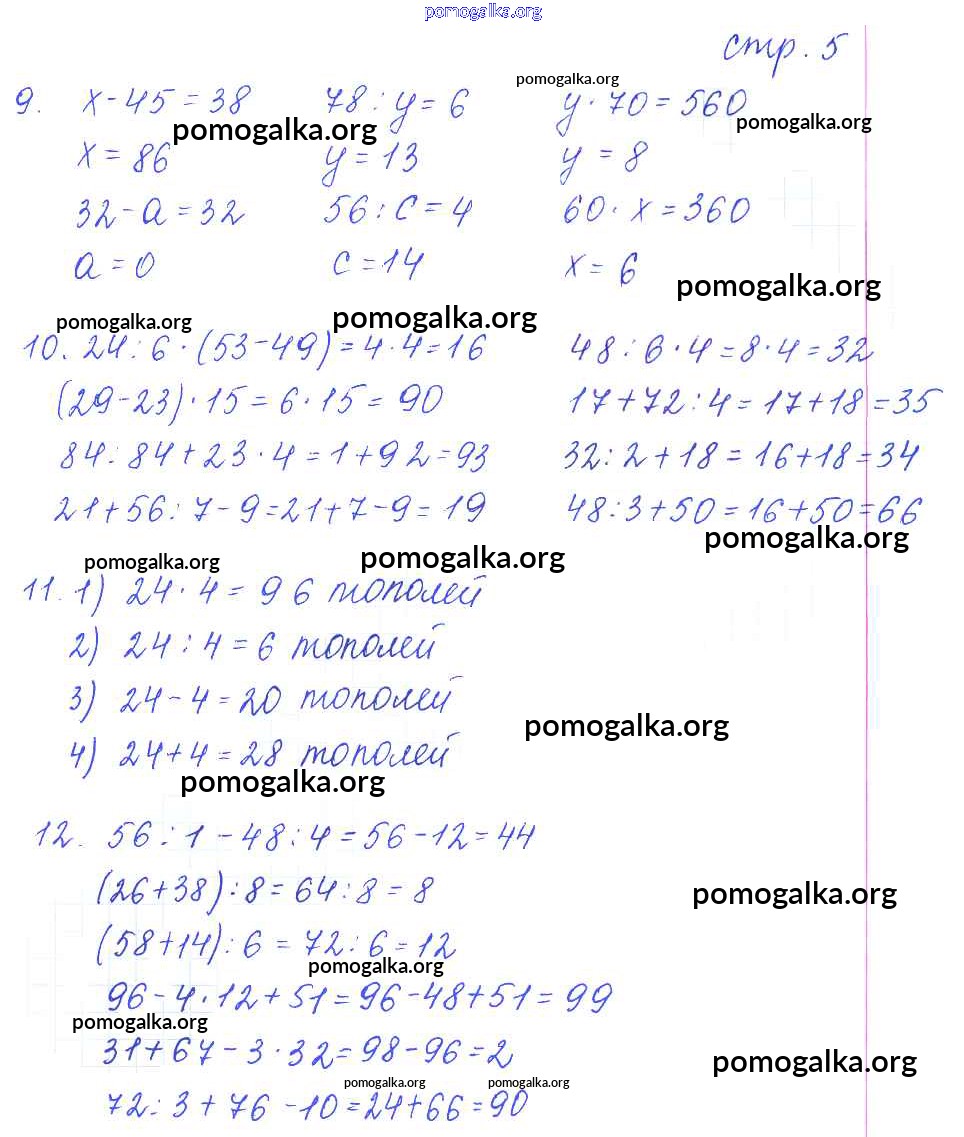 pomogalka.org
стр. 5
pomogalka.org
9. x - 45 = 38 78 : y = 6 y · 70 = 560
pomogalka.org pomogalka.org
x = 86 y = 13 y = 8
32 - a = 32 56 : c = 4 60 · x = 360
a = 0 c = 14 x = 6
pomogalka.org
pomogalka.org pomogalka.org
10. 24 : 6 · (53 - 49) = 4 · 4 = 16 48 : 6 · 4 = 8 · 4 = 32
(29 - 23) · 15 = 6 · 15 = 90 17 + 72 : 4 = 17 + 18 = 35
84 : 84 + 23 · 4 = 1 + 92 = 93 32 : 2 + 18 = 16 + 18 = 34
21 + 56 : 7 - 9 = 21 + 7 - 9 = 19 48 : 3 + 50 = 16 + 50 = 66
pomogalka.org
pomogalka.org pomogalka.org
11. 1) 24 · 4 = 96 тополей
2) 24 : 4 = 6 тополей
3) 24 - 4 = 20 тополей
pomogalka.org
4) 24 + 4 = 28 тополей
pomogalka.org
12. 56 : 1 - 48 : 4 = 56 - 12 = 44
(26 + 38) : 8 = 64 : 8 = 8
pomogalka.org
(58 + 14) : 6 = 72 : 6 = 12
pomogalka.org
96 - 4 · 12 + 51 = 96 - 48 + 51 = 99
pomogalka.org
31 + 67 - 3 · 32 = 98 - 96 = 2
pomogalka.org
pomogalka.org pomogalka.org
72 : 3 + 76 - 10 = 24 + 66 = 90